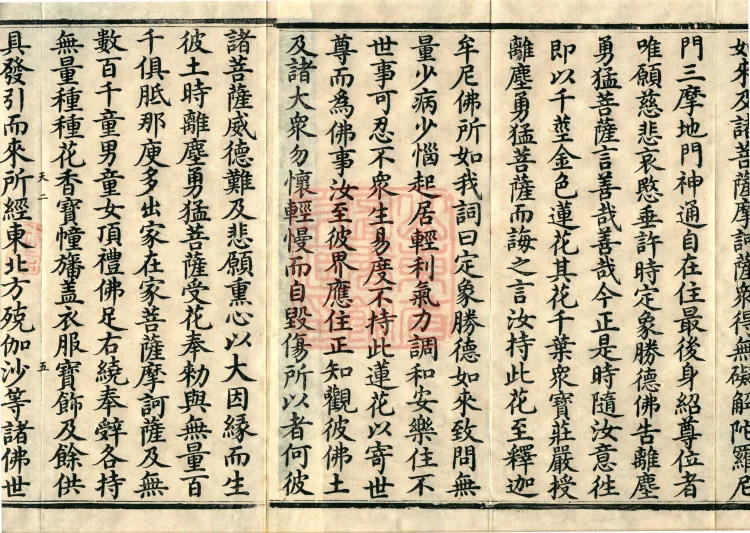 如來及諸菩薩摩訶薩衆得無礙解陀羅尼
門三摩地門神通自在住最後身紹尊位者
唯願慈悲哀愍垂許時定象勝德佛告離塵
勇猛菩薩言善哉善哉今正是時隨汝意往
即以千莖金色蓮花其花千葉衆寶莊嚴授
離塵勇猛菩薩而誨之言汝持此花至釋迦
牟尼佛所如我詞曰定象勝德如來致問無
量少病少惱起居輕利氣力調和安樂住不
世事可忍不衆生易度不持此蓮花以寄世
尊而為佛事汝至彼界應住正知觀彼佛土
及諸大衆勿懷輕慢而自毀傷所以者何彼
諸菩薩威德難及悲願熏心以大因緣而生
彼土時離塵勇猛菩薩受花奉勑與無量百
千俱胝那庾多出家在家菩薩摩訶薩及無
數百千童男童女頂禮佛足右繞奉辤各持
無量種種花香寶幢旛盖衣服寶飾及餘供
天二 五
具發引而來所經東北方殑伽沙等諸佛世